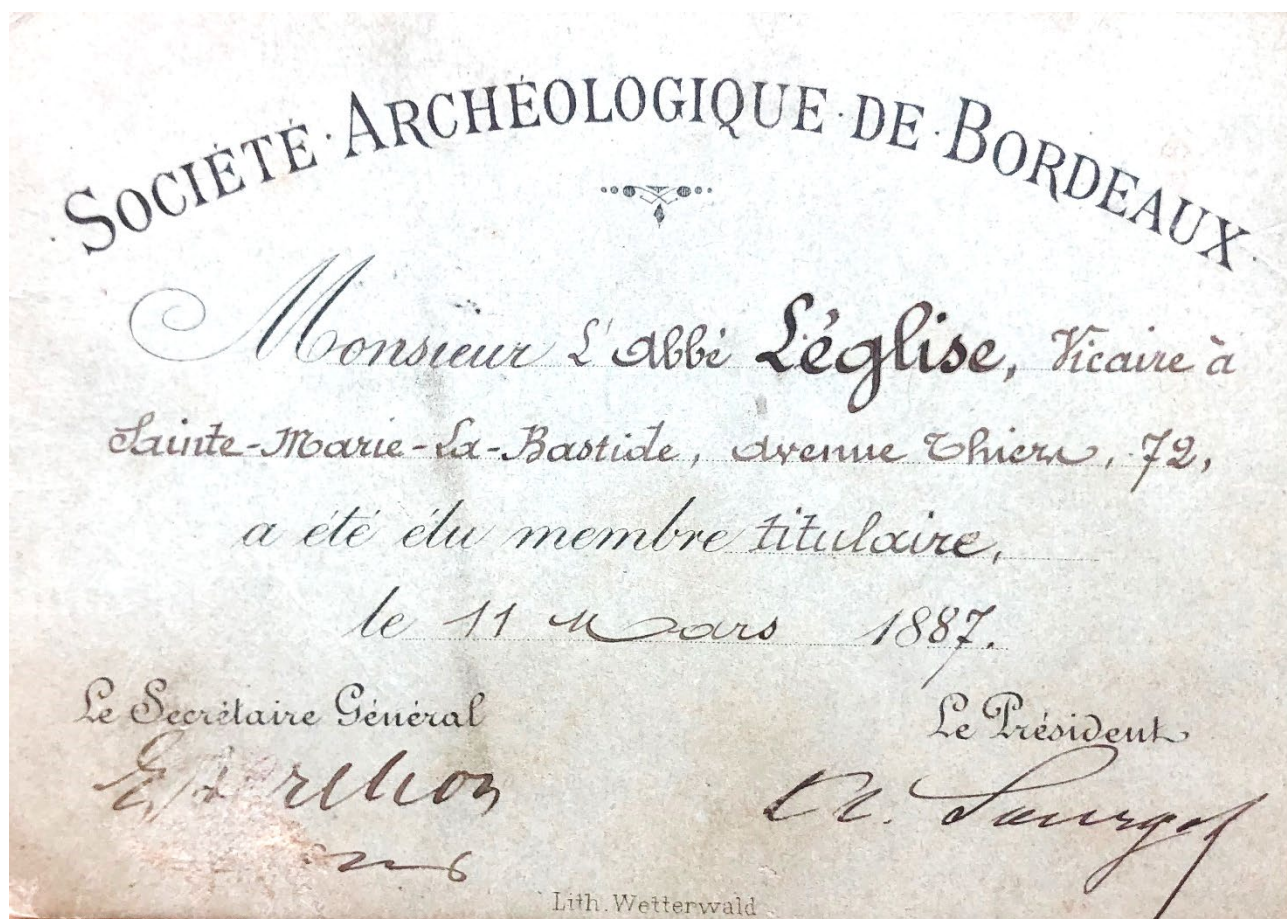 SOCIÉTÉ · ARCHÉOLOGIQUE · DE · BORDEAUX
Monsieur L'Abbé Léglise, Vicaire à
Sainte-Marie-La-Bastide, avenue Thiers, 72,
a été élu membre titulaire,
le 11 Mars 1887.
Le Secrétaire Général
Le Président
Lith. Wetterwald